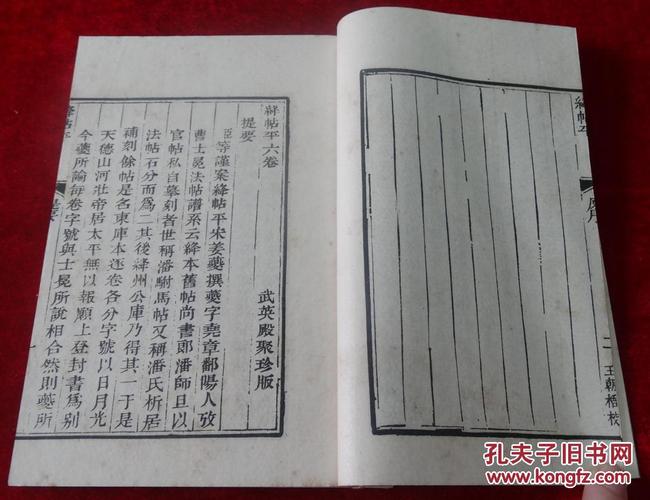 絳帖平
序
二
王朝梧校
絳帖平六卷
提要
武英殿聚珍版
臣等謹案絳帖平宋姜夔撰夔字堯章鄱陽人攷
曹士冕法帖譜系云絳本舊帖尚書郎潘師旦以
官帖私自摹刻者世稱潘駙馬帖又稱潘氏析居
法帖石分而爲二其後絳州公庫乃得其一于是
補刻餘帖是名東庫本逐卷各分字號以日月光
天德山河壯帝居太平無以報願上登封書爲別
今夔所論每卷字號與士冕所說相合然則夔所
絳帖平
孔夫子旧书网